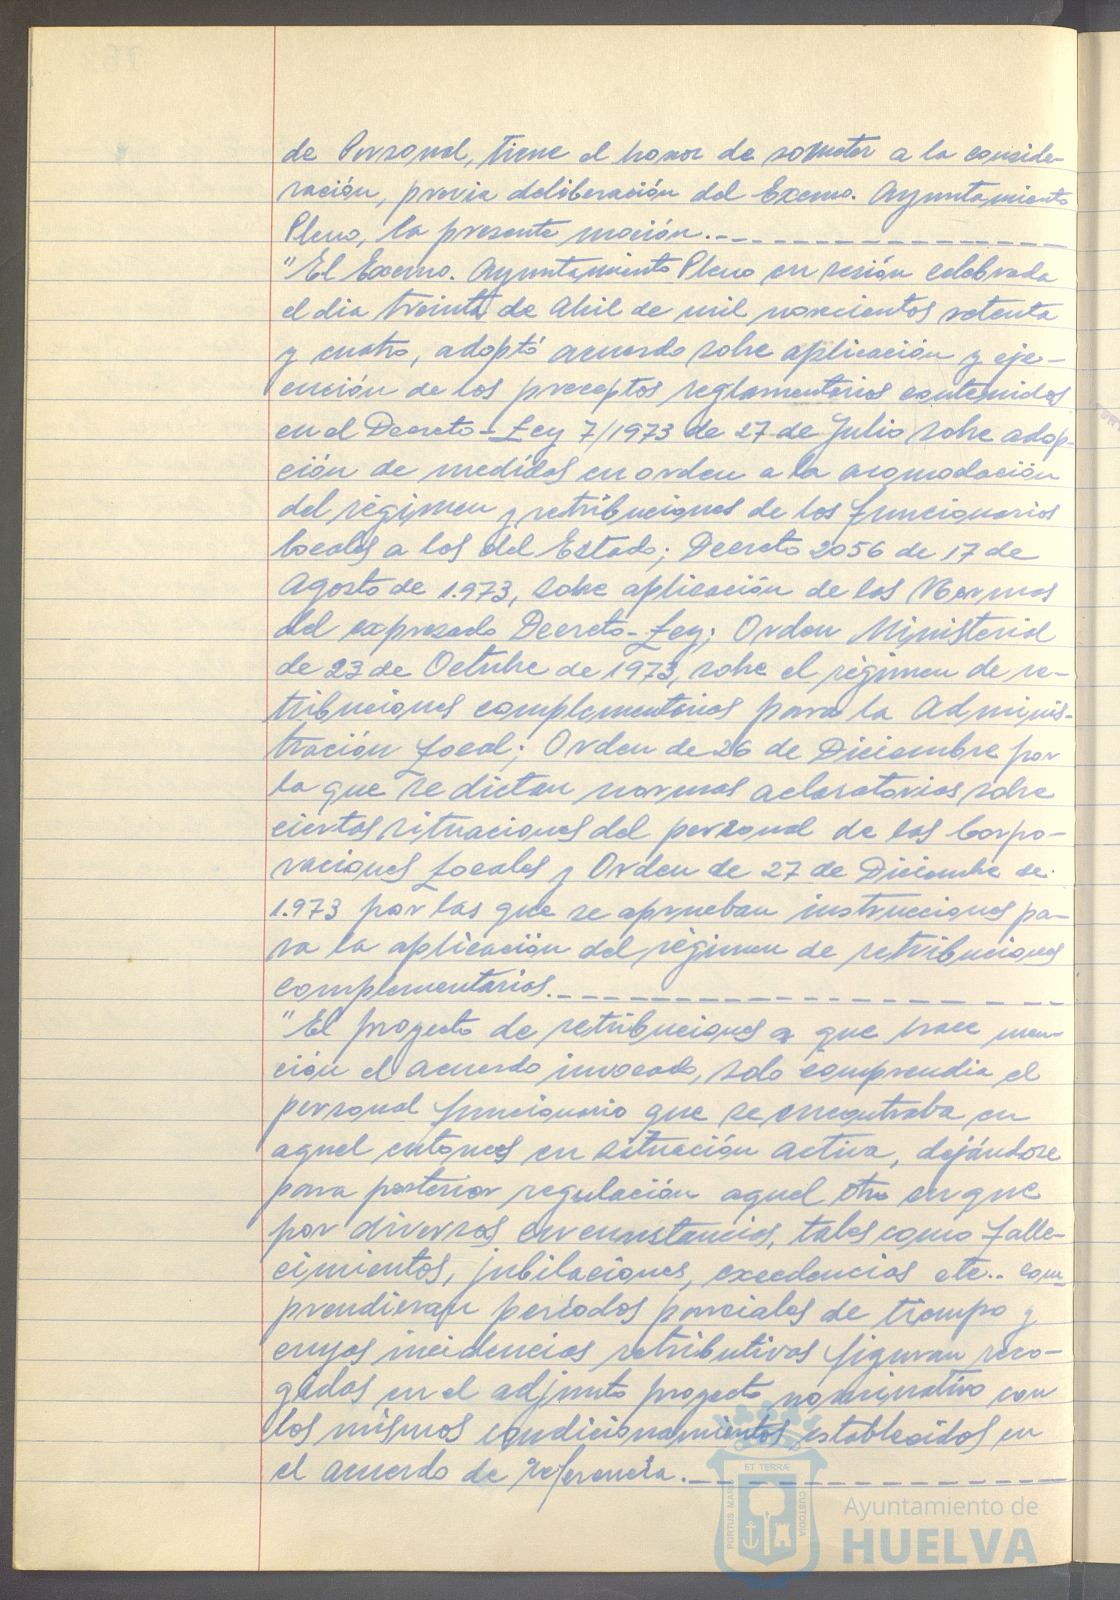 de Personal, tiene el honor de someter a la conside-
ración, previa deliberación del Excmo. Ayuntamiento
Pleno, la presente moción.
"El Excmo. Ayuntamiento Pleno en sesión celebrada
el dia treinta de Abril de mil novecientos setenta
y cuatro, adoptó acuerdo sobre aplicación y eje-
cución de los preceptos reglamentarios contenidos
en el Decreto-Ley 7/1973 de 27 de Julio sobre adop-
ción de medidas en orden a la acomodación
del régimen y retribuciones de los funcionarios
locales a los del Estado; Decreto 2056 de 17 de
Agosto de 1.973, sobre aplicación de las Normas
del expresado Decreto-Ley; Orden Ministerial
de 23 de Octubre de 1973, sobre el régimen de re-
tribuciones complementarias para la Adminis-
tración Local; Orden de 26 de Diciembre por
la que se dictan normas aclaratorias sobre
ciertas situaciones del personal de las Corpo-
raciones Locales y Orden de 27 de Diciembre de
1.973 por las que se aprueban instrucciones pa-
ra la aplicación del régimen de retribuciones
complementarias.
"El proyecto de retribuciones a que hace men-
ción el acuerdo invocado, solo comprendia el
personal funcionario que se encontraba en
aquel entonces en situación activa, dejándose
para posterior regulación aquel otro en que
por diversas circunstancias, tales como falle-
cimientos, jubilaciones, excedencias etc.. com-
prendieran períodos parciales de tiempo y
cuyas incidencias retributivas figuran reco-
gidas en el adjunto proyecto nominativo con
los mismos condicionamientos establecidos en
el acuerdo de referencia.
ET TERRÆ
PORTUS MARIS
CUSTODIA
Ayuntamiento de
HUELVA